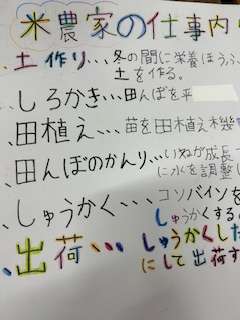 米農家の仕事内
土作り… 冬の間に栄養ほうふ
土を作る。
しろかき… 田んぼを平
田植え… 苗を田植え機
田んぼのかんり… いねが成長
に水を調整し
しゅうかく… コンバインを
しゅうかくする
出荷… しゅうかくした
にして出荷す